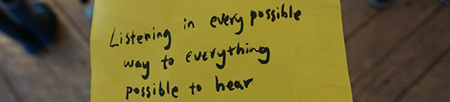 Listening in every possible
way to everything
possible to hear